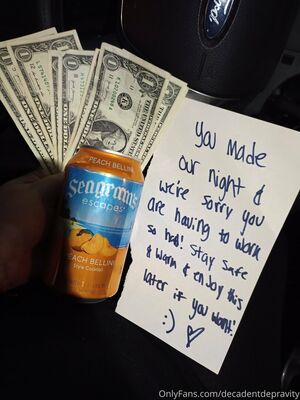 PEACH BELLINI
Seagram's
escapes
PEACH BELLINI
Style Cocktail
You Made
our night &
we're sorry you
are having to work
so hard! Stay Safe
& warm & enjoy this
later if you want!
:) ♡
OnlyFans.com/decadentdepravity